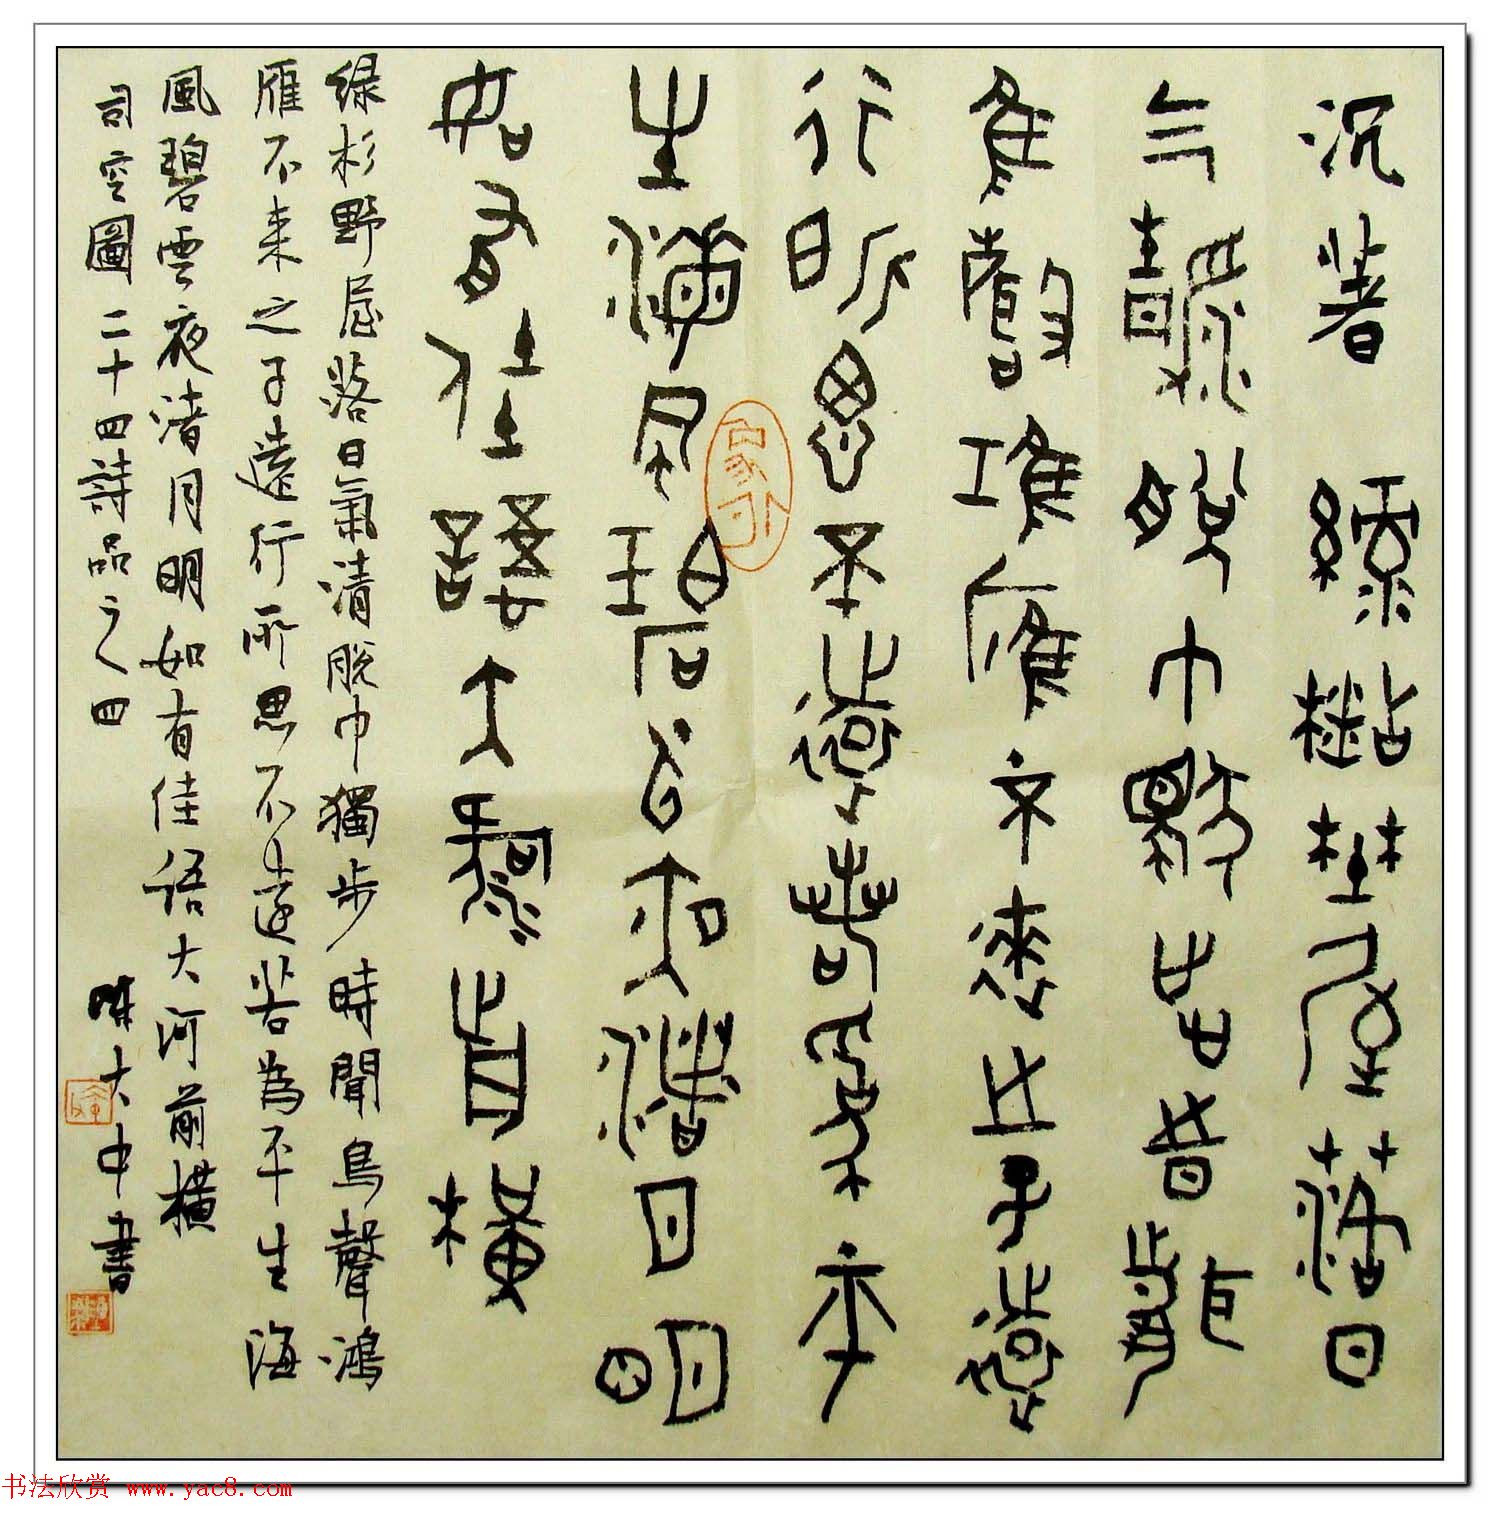 沉著 綠杉野屋落日
气清脫巾獨步時聞
鳥聲鴻雁不來之子遠
行所思不遠若為平
生海風碧雲夜渚月明
如有佳語大河前橫
綠杉野屋落日氣清脫巾獨步時聞鳥聲鴻
雁不來之子遠行所思不遠若為平生海
風碧雲夜渚月明如有佳語大河前橫
司空圖二十四詩品之四 陳大中書
书法欣赏 www.yac8.com